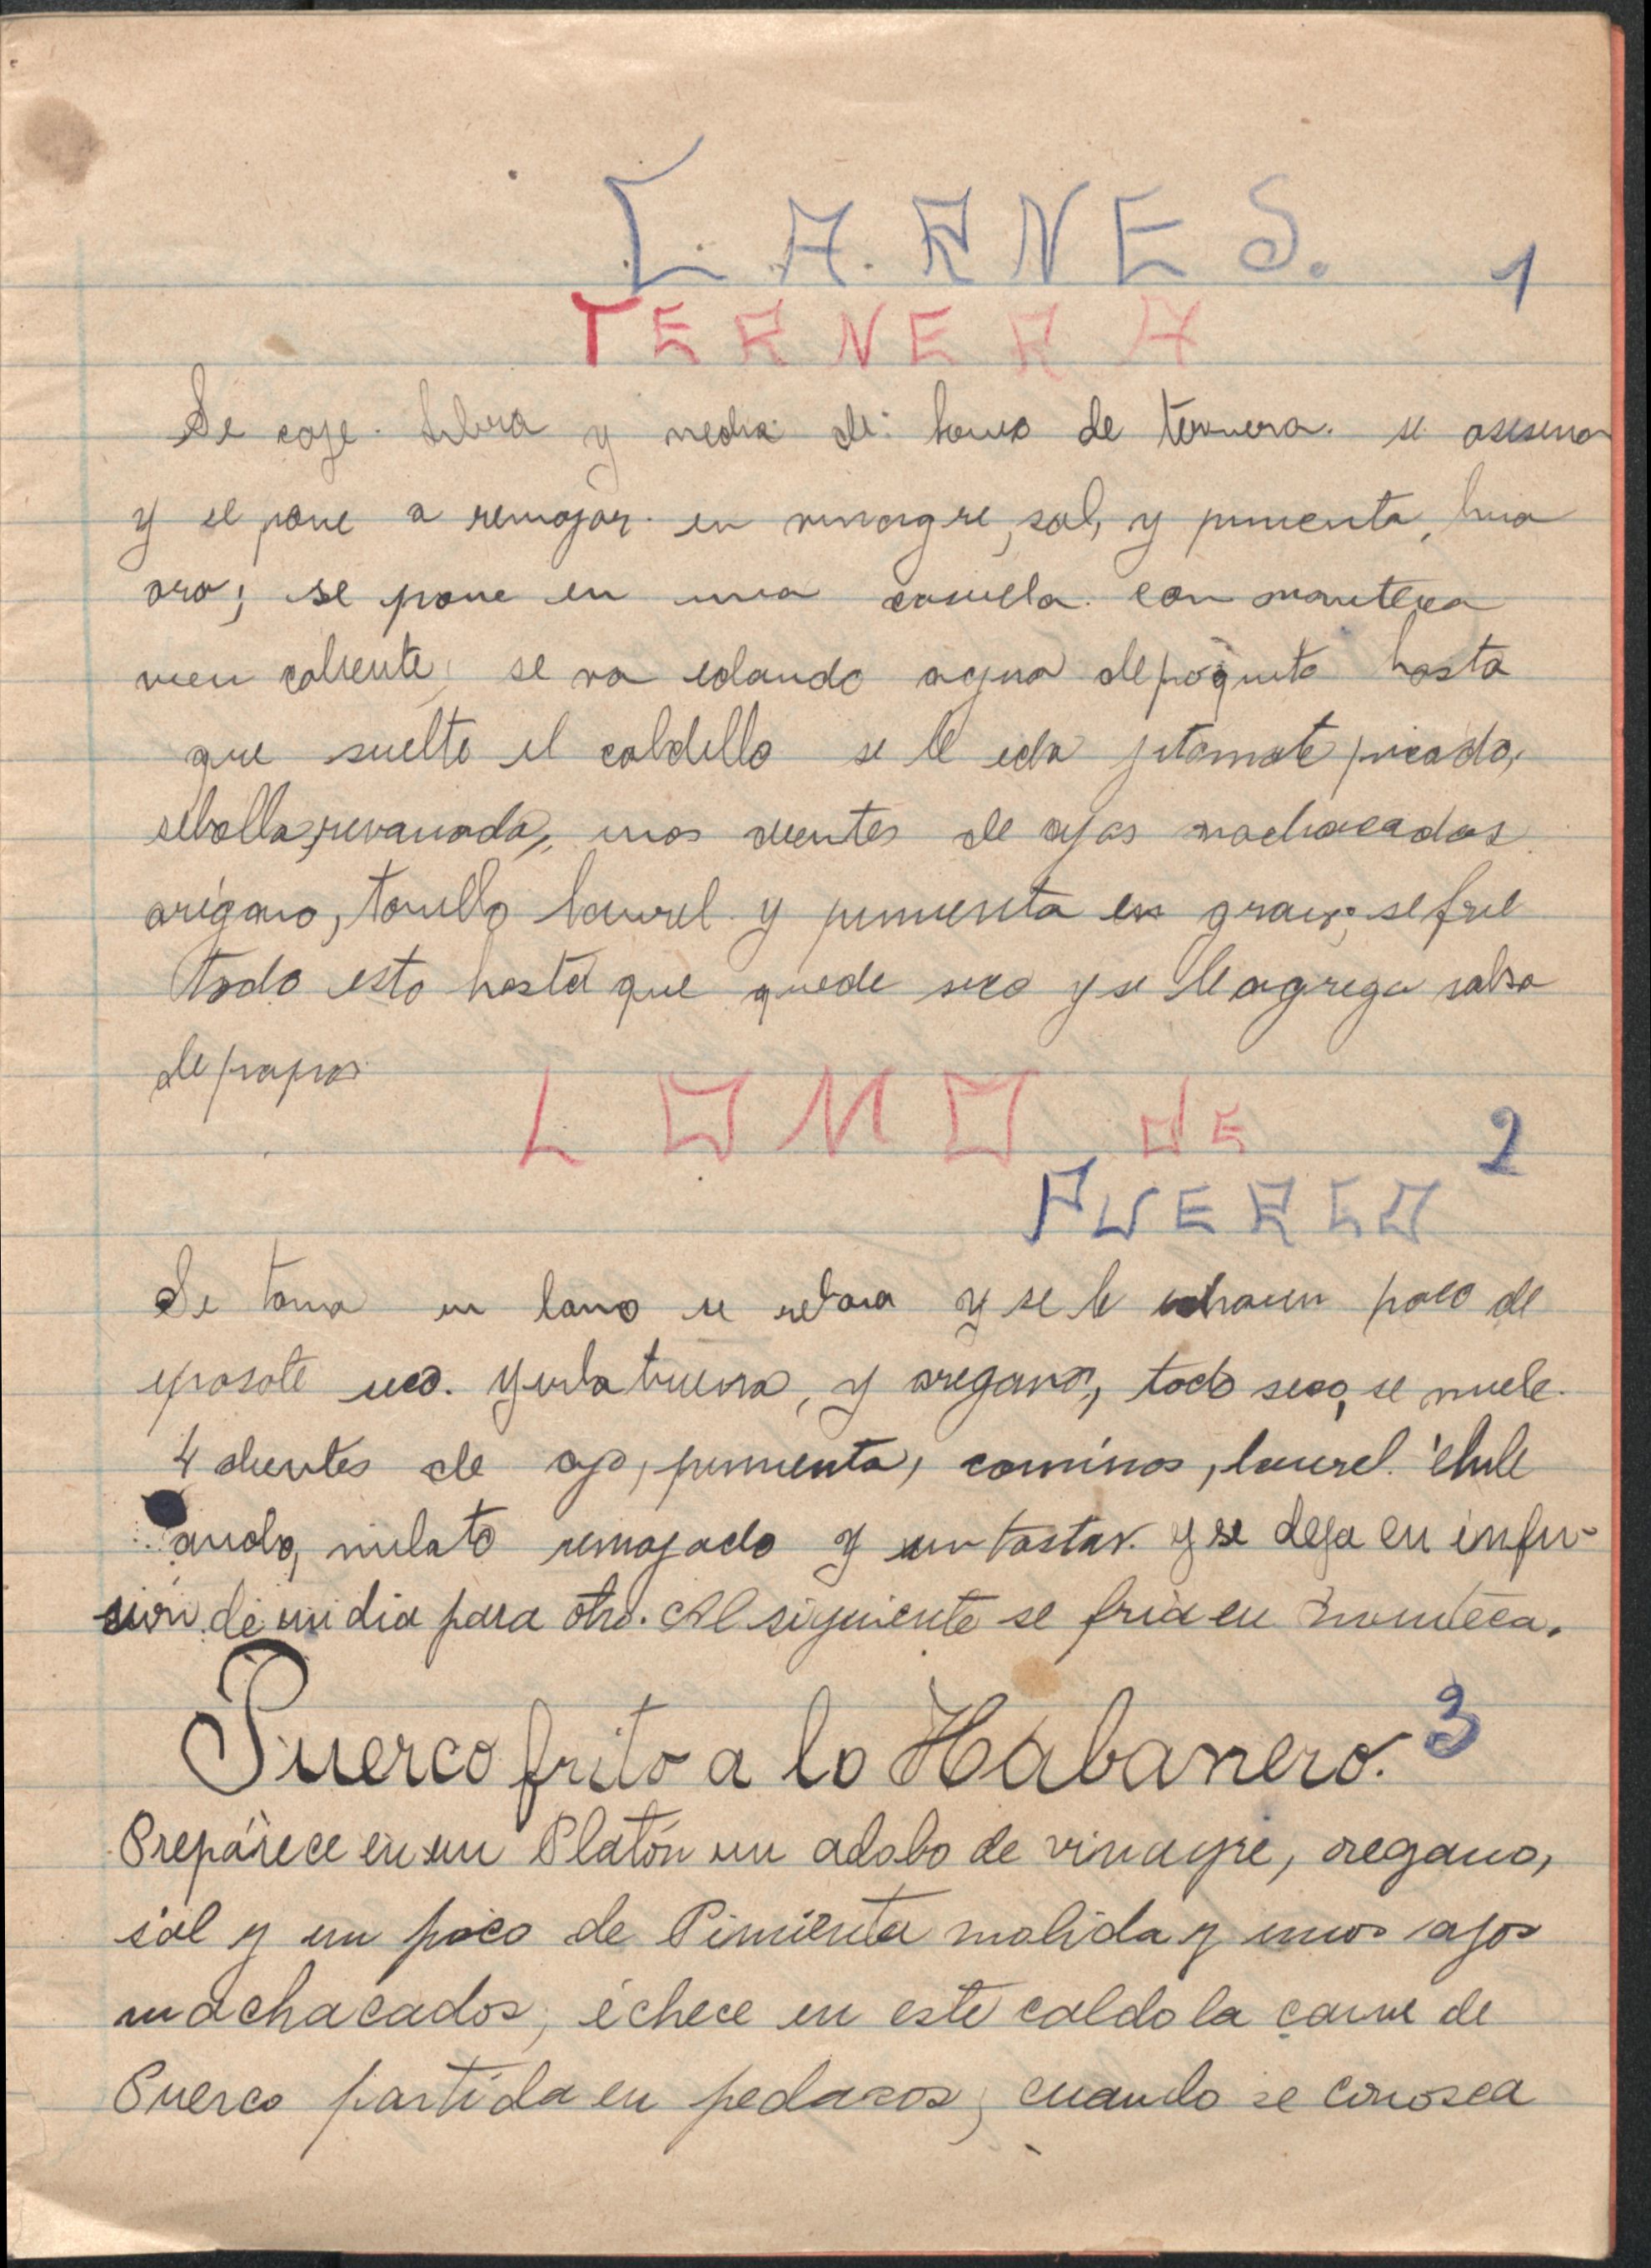 CARNES. 1
TERNERA
Se coje libra y media de lomo de ternera. se
y se pone a remojar en vinagre, sal, y pimienta,
ora; se pone en una casuela con manteca
vien caliente, se va echando agua depoquito hasta
que suelte el caldillo se le echa jitomate picado,
sebolla, revanada, unos dientes de ajos machacados
orégano, tomillo laurel y pimienta en grano, se frie
todo esto hasta que quede seco y se le agrega salsa
de papas
LOMO DE 2
PUERCO
Se toma un lomo se y se le echa un poco de
eposote seco. yerba buena, y oregano, todo seco, se muele
4 dientes de ajo, pimienta, cominos, laurel chile
ancho, mulato remojado y sin tostar. y se deja en infu-
sion de un dia para otro. Al siguiente se fria en manteca.
Puerco frito a lo Habanero. 3
Prepárece en un Platón un adobo de vinagre, oregano,
sal y un poco de Pimienta molida y unos ajos
machacados, échece en este caldo la carne de
Puerco partida en pedasos; cuando se conosca